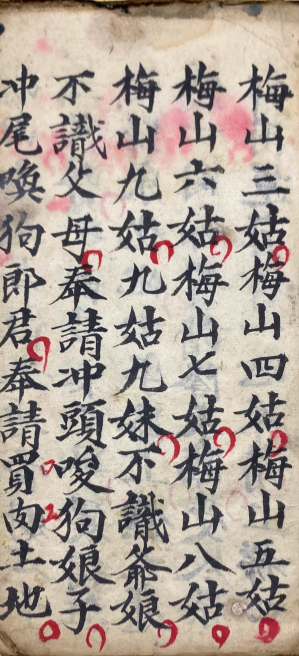 梅山三姑梅山四姑梅山五姑
梅山六姑梅山七姑梅山八姑
梅山九姑九姑九妹不識爺娘
不識父母奉請冲頭唆狗娘子
冲尾喚狗郎君奉請買肉土地